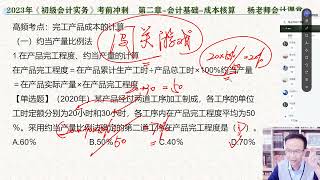 2023年《初级会计实务》考前冲刺 第二章-会计基础-成本核算 杨老师会计课堂
高频考点：完工产品成本的计算
（一）约当产量比例法
闯关游戏
1.在产品完工程度、约当产量
在产品完工程度=在产品累计生产工时÷产品总工时×100%
=在产品实际产量×在产品完工程度
【单选题】（2020年）某产品经过两道工序加工制成，各工序的单位
工时定额分别为20小时和30小时，各工序内在产品完工程度平均为50
%。采用约当产量比例法确定的第二道工序在产品完工程度是（ ）。
A.60% B.50% C.40% D.70%